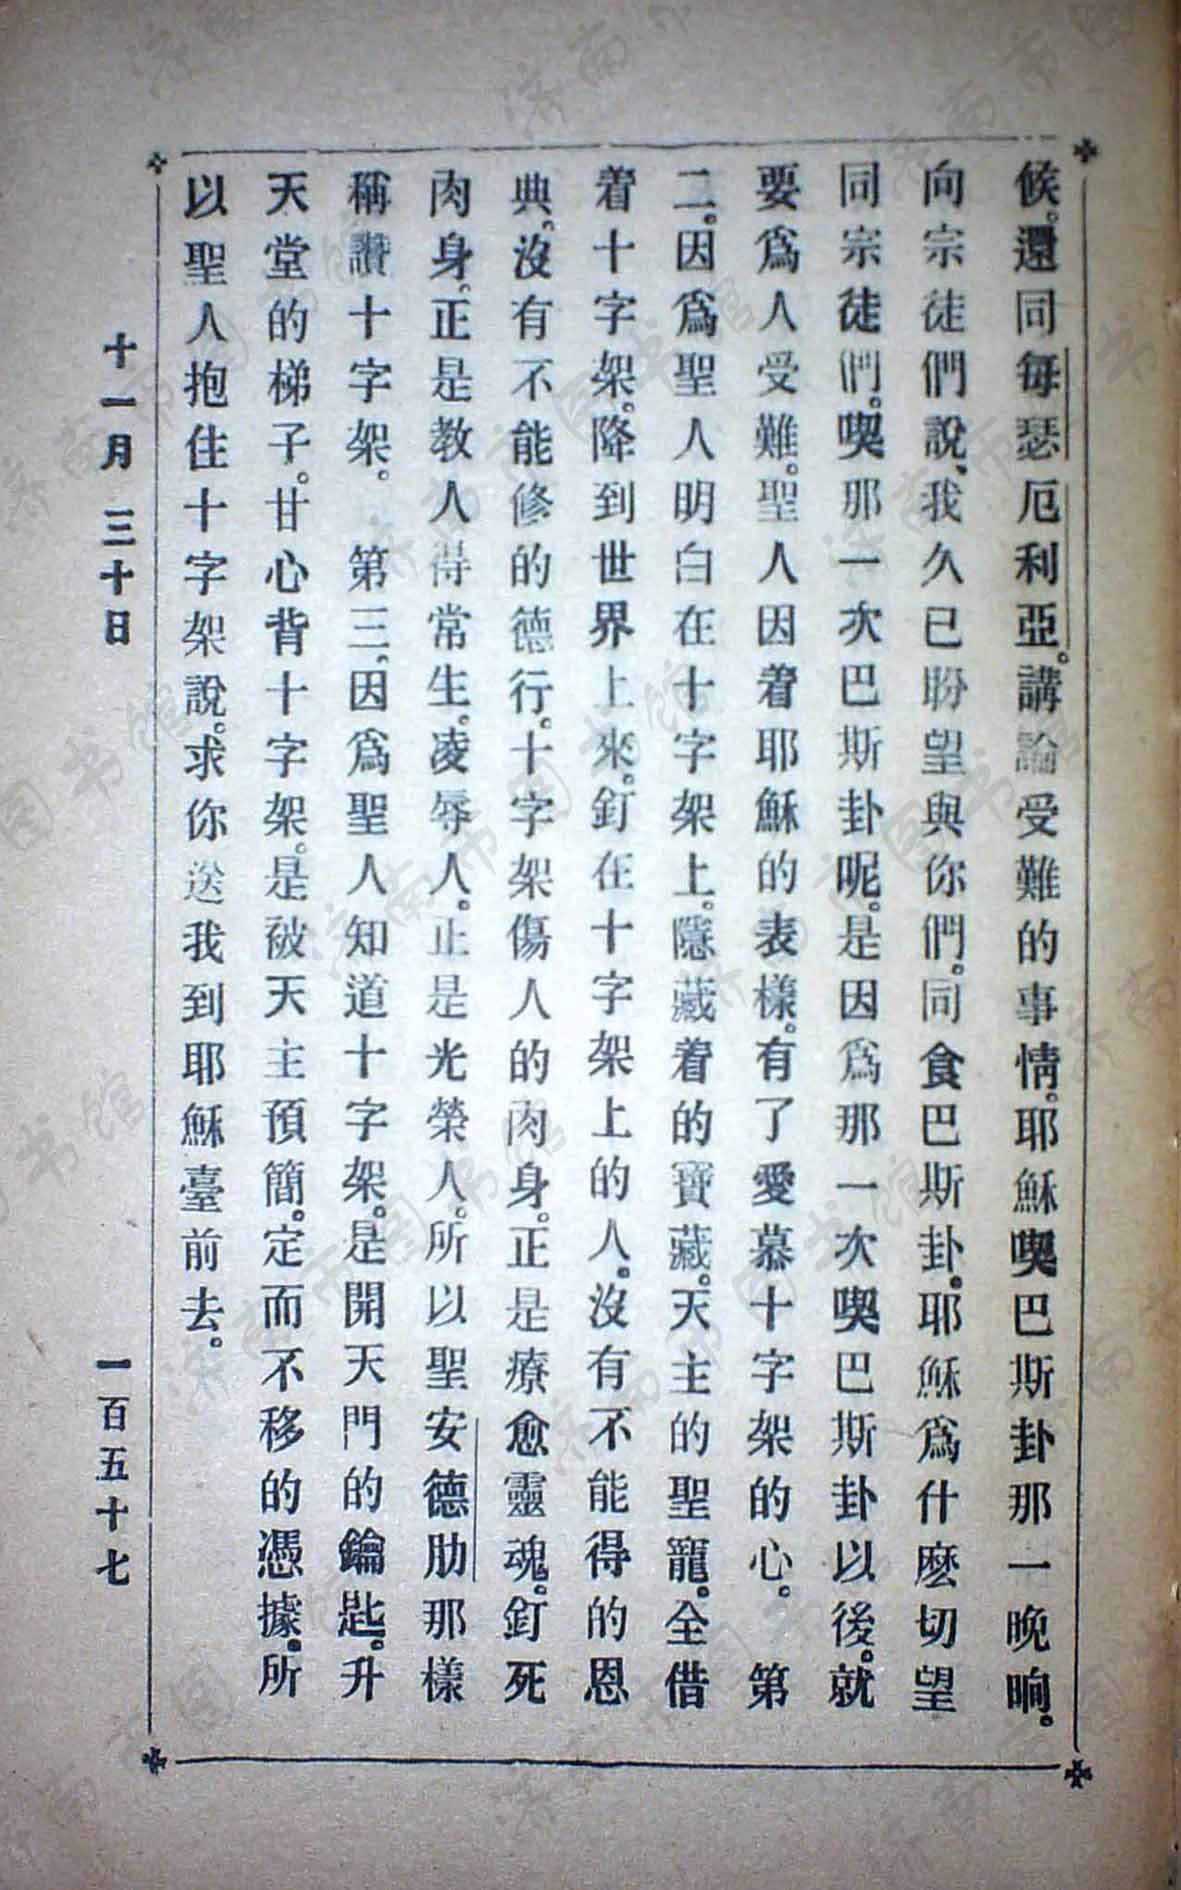 候。還同每瑟厄利亞。講論受難的事情。耶穌喫巴斯卦那一晚晌。
向宗徒們說、我久已盼望與你們。同食巴斯卦。耶穌爲什麽切望
同宗徒們。喫那一次巴斯卦呢。是因爲那一次喫巴斯卦以後。就
要爲人受難。聖人因着耶穌的表樣。有了愛慕十字架的心。　第
二。因爲聖人明白在十字架上。隱藏着的寶藏。天主的聖寵。全借
着十字架。降到世界上來。釘在十字架上的人。沒有不能得的恩
典。沒有不能修的德行。十字架傷人的肉身。正是療愈靈魂。釘死
肉身。正是教人得常生。凌辱人。正是光榮人。所以聖安德肋那樣
稱讚十字架。　第三、因爲聖人知道十字架。是開天門的鑰匙。升
天堂的梯子。甘心背十字架。是被天主預簡。定而不移的憑據。所
以聖人抱住十字架說。求你送我到耶穌臺前去。
十一月 三十日 一百五十七
济南市图书馆